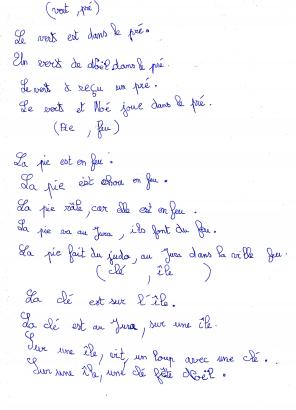 (vert, pré)
Le vert est dans le pré.
Un vert de Noël dans le pré.
Le vert a reçu un pré.
Le vert et Noé joue dans le pré.
(Pie, feu)
La pie est en feu.
La pie est en feu.
La pie râle, car elle est en feu.
La pie va au Jura, ils font du feu.
La pie fait du judo, au Jura dans la ville feu.
(clé, île)
La clé est sur l'île.
La clé est au Jura, sur une île.
Sur une île, vit, un loup avec une clé.
Sur une île, une clé fête Noël.